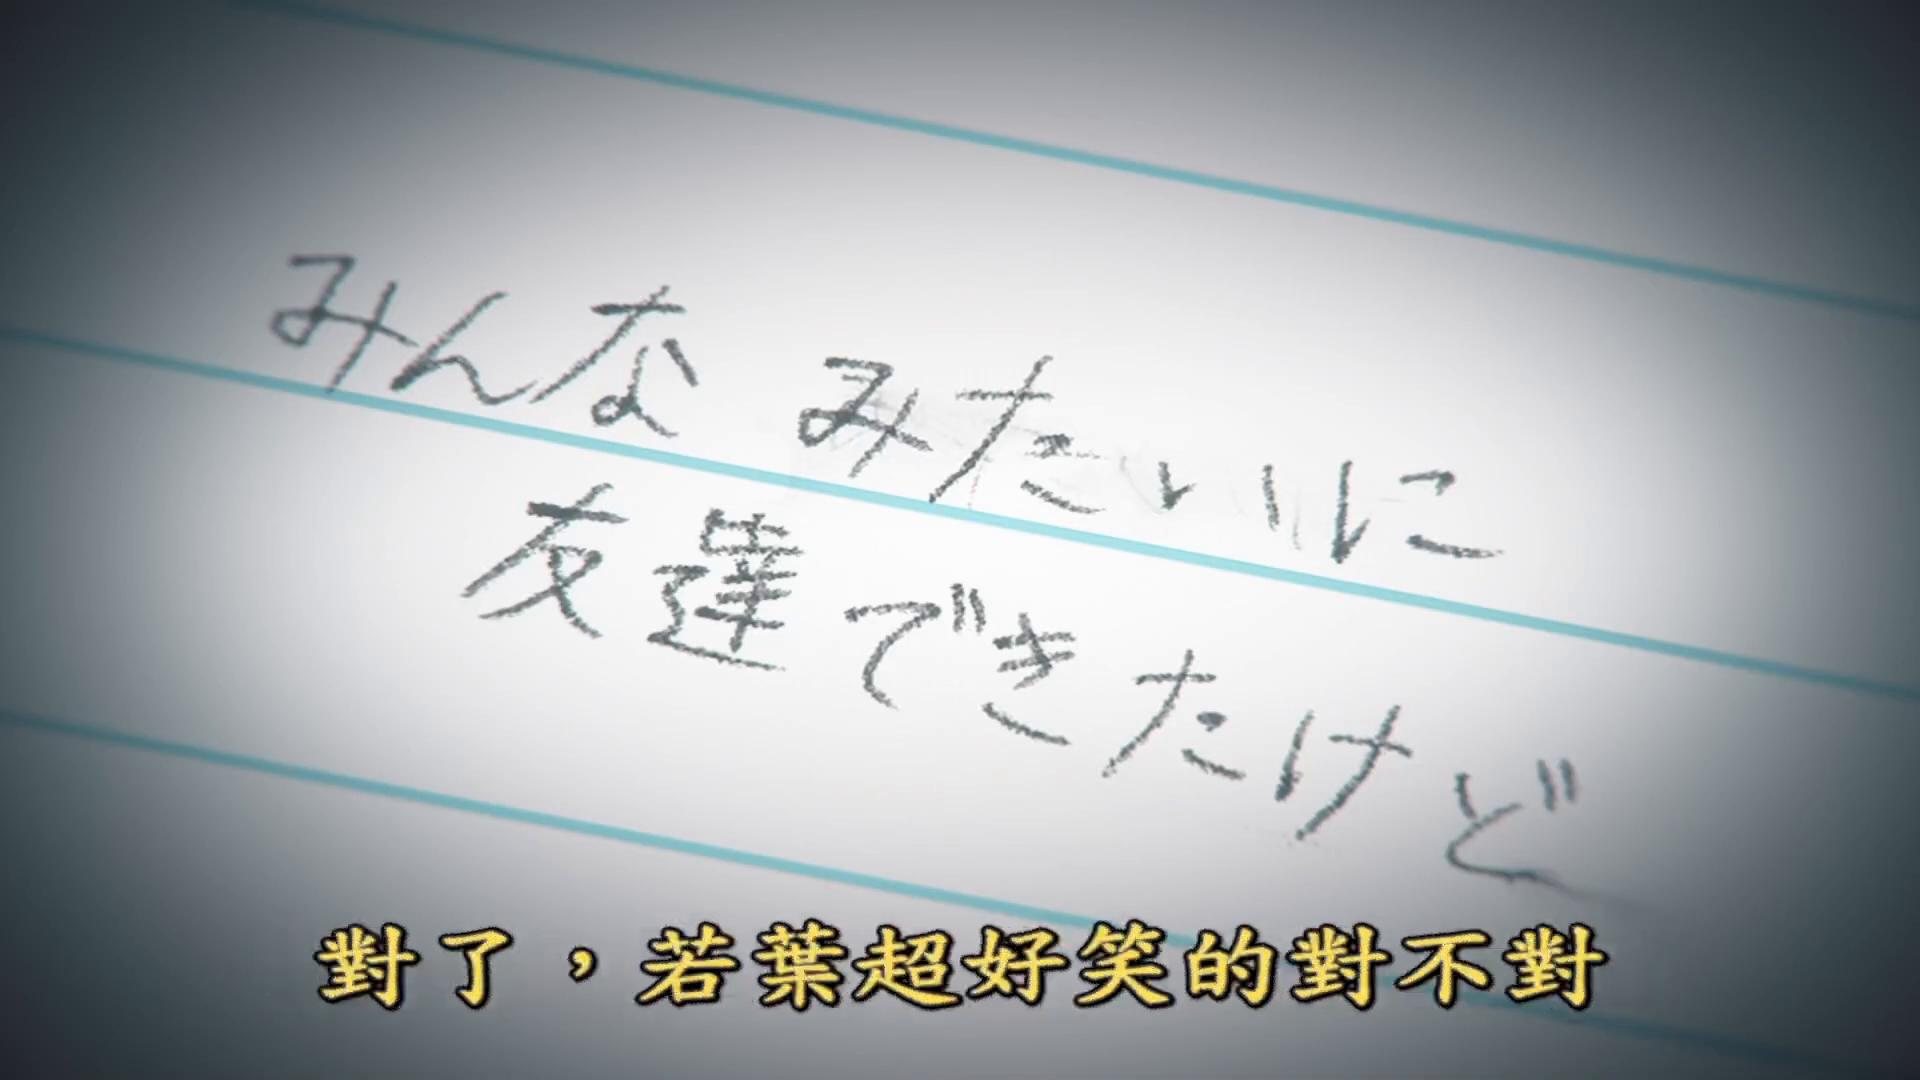 みんな みたいに
友達できたけど
對了，若葉超好笑的對不對